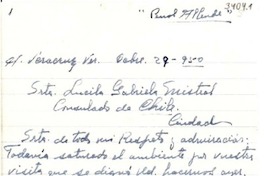 34091
H. Veracruz Ver. Octbre. 29-950
Srta. Lucila Gabriela Mistral
Consulado de Chile.
Ciudad
Srta. de todo mi Respeto y admiración:
Todavía saturado el ambiente por vuestra
visita que se dignó Vd. hacernos ayer